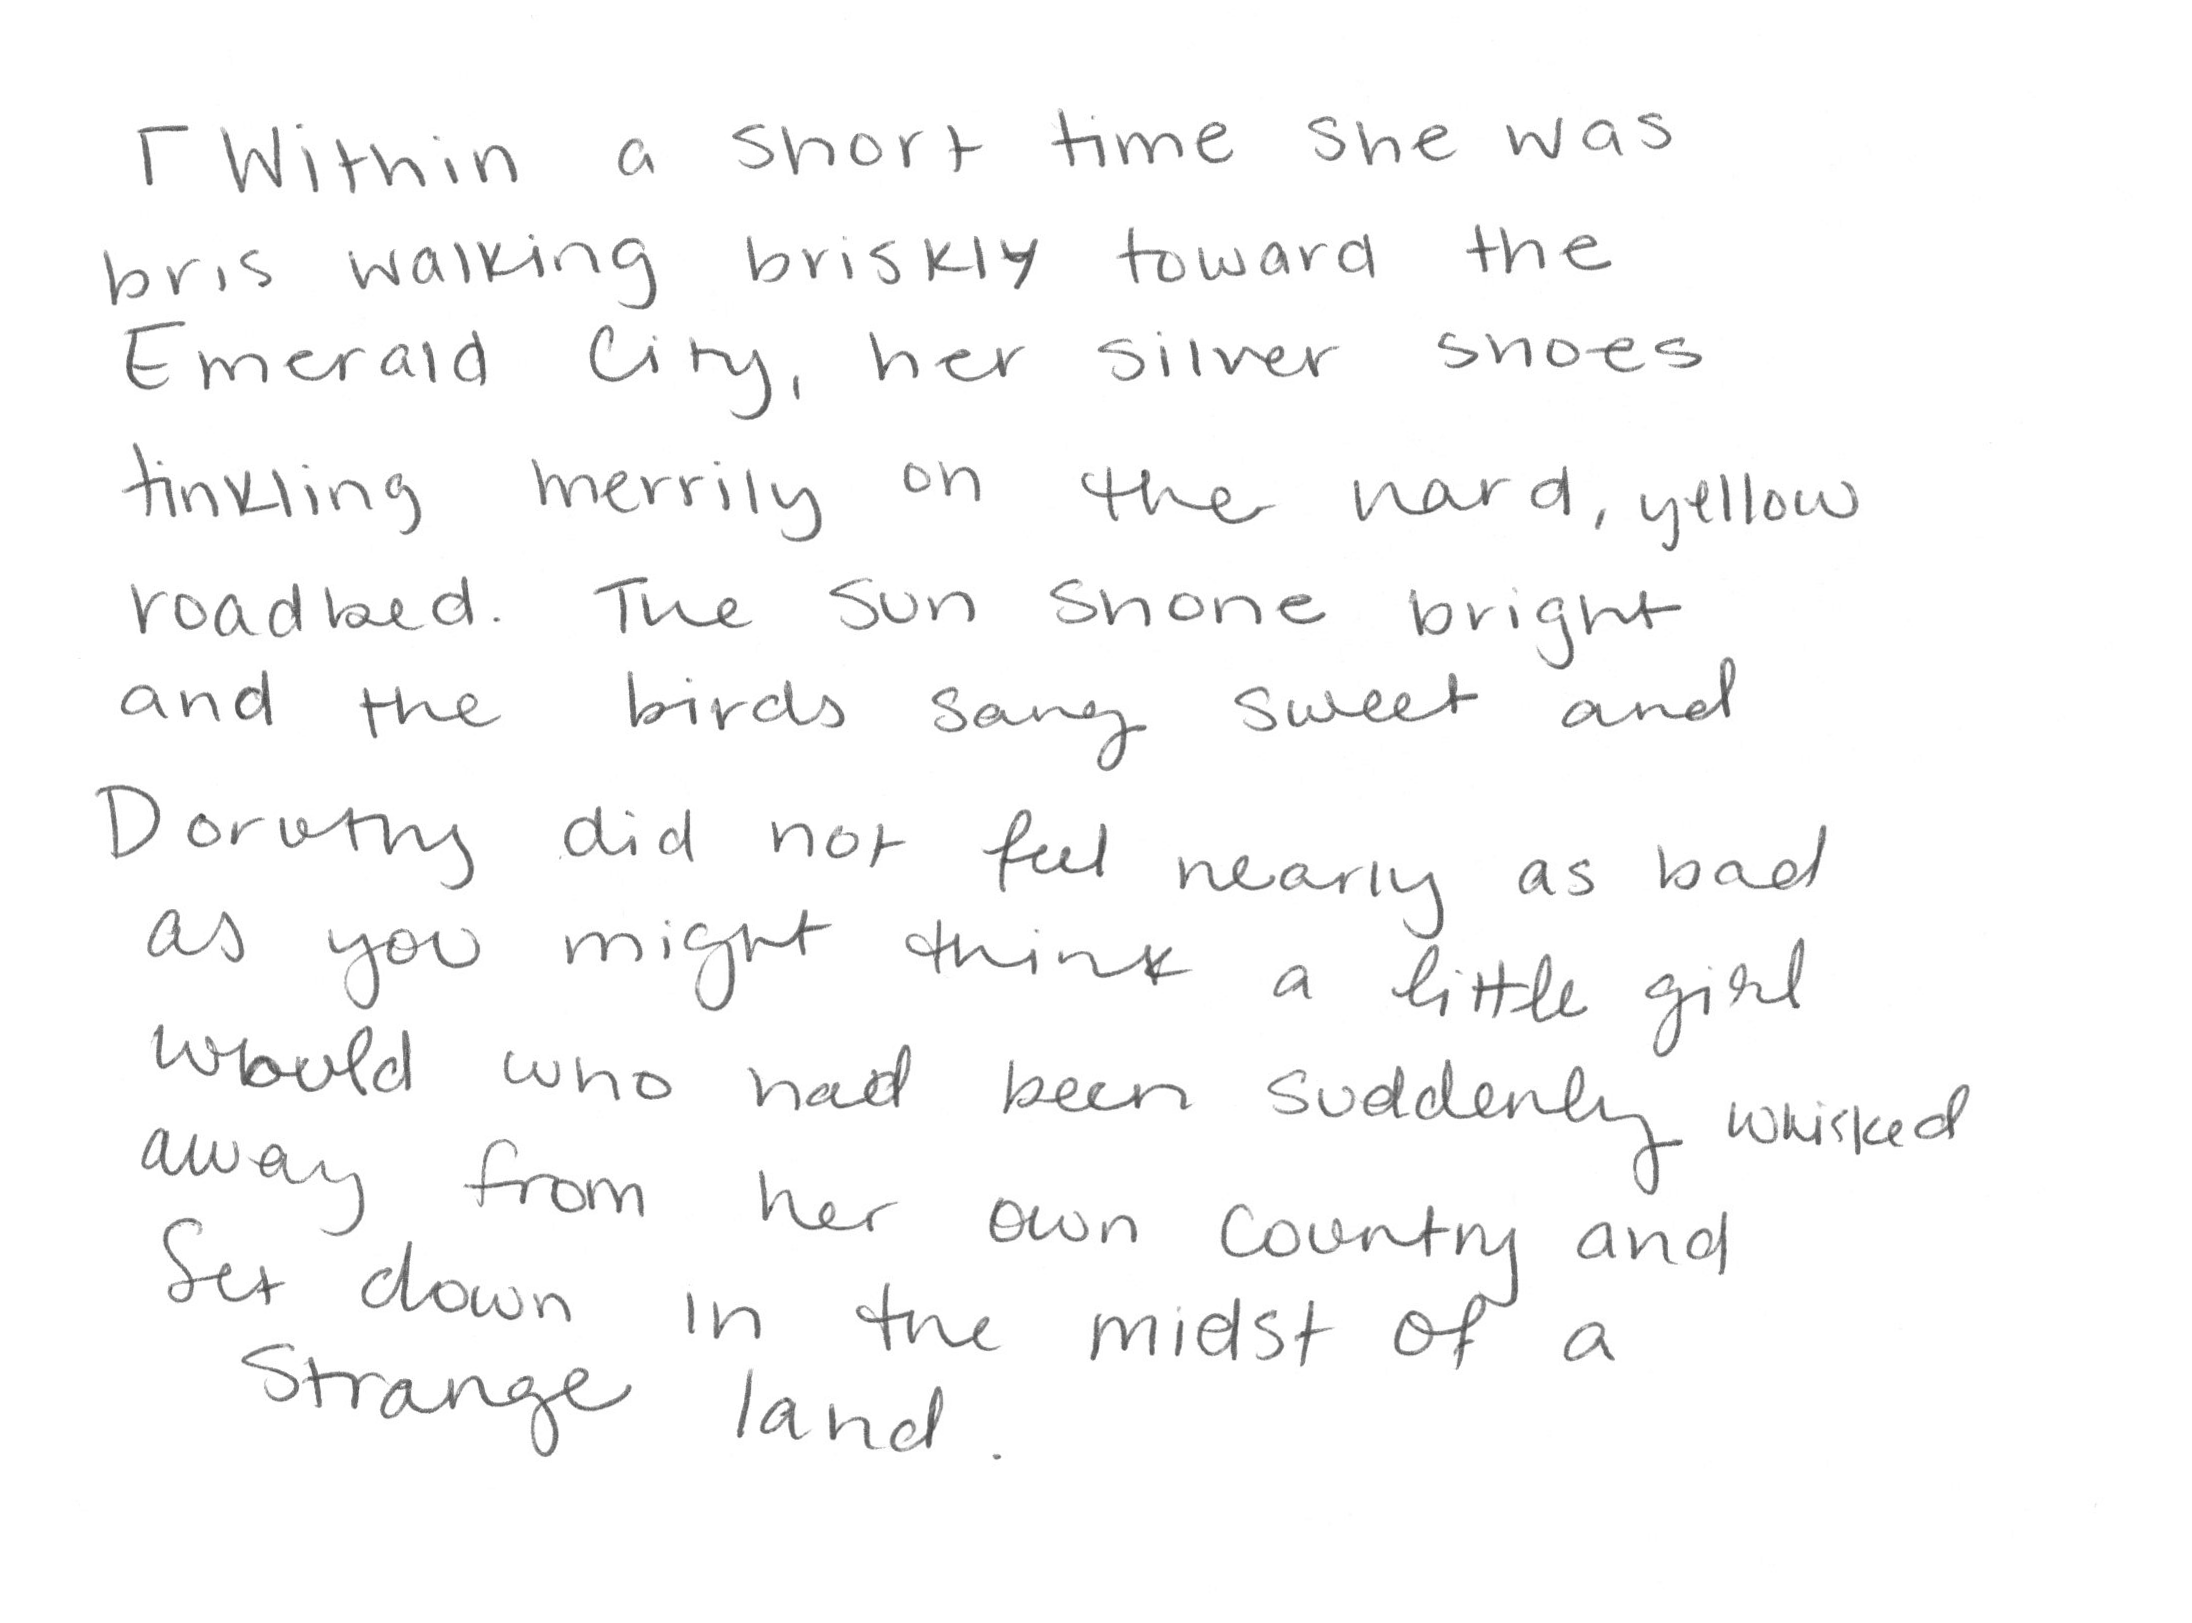 Within a short time she was
bris walking briskly toward the
Emerald City, her silver shoes
tinkling merrily on the hard, yellow
roadbed. The sun shone bright
and the birds sang sweet and
Dorothy did not feel nearly as bad
as you might think a little girl
would who had been suddenly whisked
away from her own country and
Set down in the midst of a
Strange land.